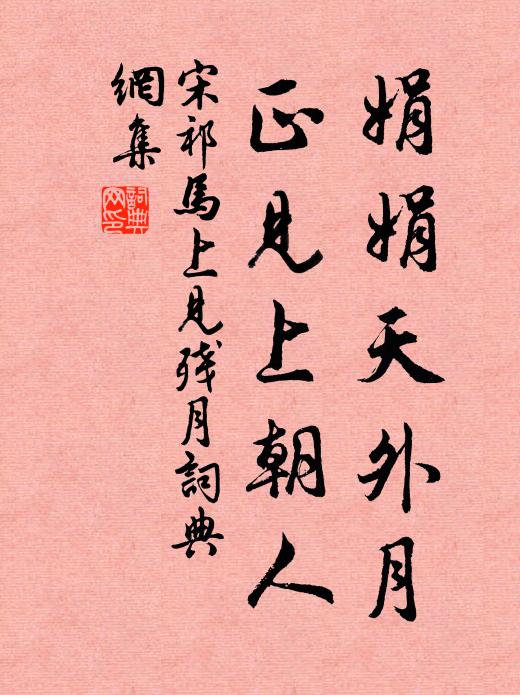 娟娟天外月
正見上朝人
宋祁馬上見殘月詞典
網集
詞典網印